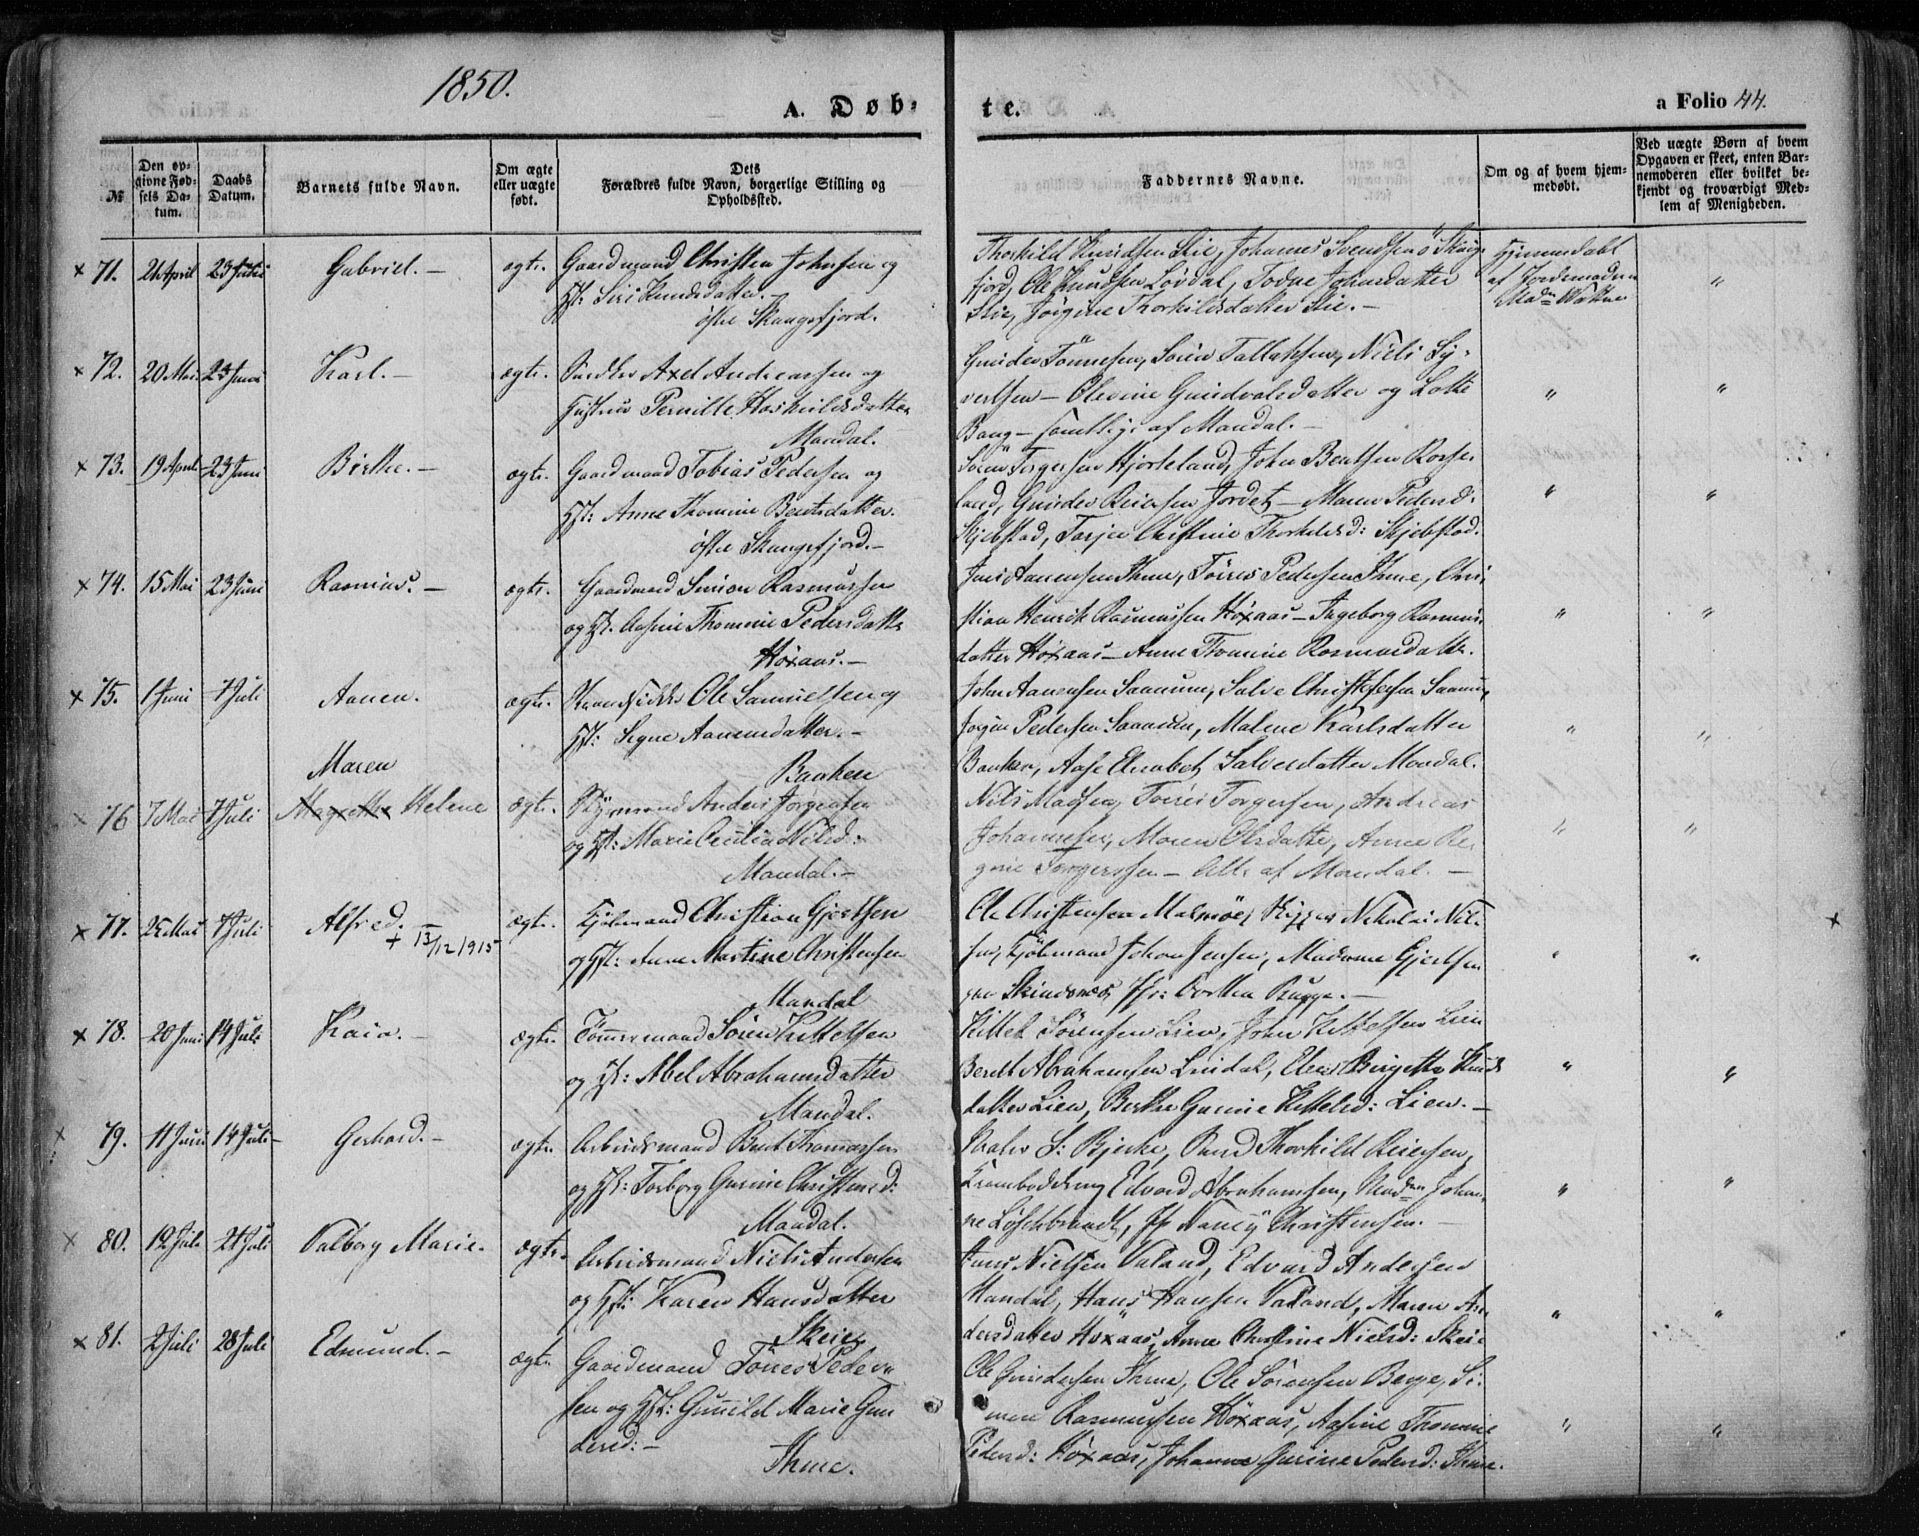 1850.
A. Døb-
te.
a Folio 44.
№
Den op-
givne Fød-
sels Da-
tum.
Daabs
Datum.
Barnets fulde Navn.
Om ægte
eller uægte
født.
Dets
Forældres fulde Navn, borgerlige Stilling og
Opholdssted.
Faddernes Navne.
Om og af hvem hjem-
medøbt.
Ved uægte Børn af hvem
Opgaven er skeet, enten Bar-
nemoderen eller hvilket be-
kjendt og troværdigt Med-
lem af Menigheden.
× 71. 21 April 23 Juni Gabriel. – ægte. Gaardmand Christen Johnsen og
Hst: Siri Knudsdatter.
østre Skaugsfjord.
Thorkild Knudsen Lie, Johannes Svendsen Skaugs
fjord, Ole Knudsen Lovdal, Todne Johnsdatter
Lie, Jørgine Thorkildsdatter Lie. –
Hjemmedøbt
af Jordemoderen
× 72. 20 Mai 23 Juni Karl. – ægte. Axel Andreassen og
Hustrue Pernille Haskildsdatter
Mandal.
Gunder Tønnesen, Søren Tallaksen, Niels Sy-
vertsen – Olevine Gundvaldsdatter og Lotte
Bang – samtlige af Mandal. –
× 73. 19 April 23 Juni Birthe. – ægte. Gaardmand Tobias Pedersen og
Hst: Anne Thomine Bentsdatter.
østre Skaugsfjord. –
Søren Torgersen Hjorteland, John Bentsen Rosse
land, Gunder Reiersen Jordet – Maren Pedersd:
Skjebstad, Tarjer Christine Thorkildsd: Skjebstad.
× 74. 15 Mai 23 Juni Rasmus. – ægte. Gaardmand Simon Rasmussen
og Hst. Aasine Thomine Pedersdatter
Høxaas. –
Jens Aanensen Ihme, Tørres Pedersen Ihme, Chri
stian Henrik Rasmussen Høxaas – Ingeborg Rasmus
datter Høxaas – Anne Thomine Rasmusdatter.
× 75. 1 Juni 7 Juli Aanen. ægte. Ole Samuelsen og
Hst: Segne Aanensdatter. –
Banken
John Aanensen Saanum, Salve Christensen Saanum,
Jørgen Pedersen Saanum, Malene Karlsdatter
Banken, Aase Elisabet Salvesdatter Mandal.
Maren
76 7 Mai 7 Juli Magrethe Helene ægte. Styrmand Anders Jørgensen
og Hst: Marie Cecilia Nilsd:
Mandal. –
Nils Madsen, Tørres Torgersen, Andreas
Johannesen, Maren Olsdatter, Anne Re
gine Torgerssen – Alle af Mandal. –
× 77. 25 Mai 7 Juli Alfred. – ægte. Kjøbmand Christian Gjertsen
+ 13/12 1915
og Hst: Anne Martine Christensen
Mandal
Ole Christensen Malmøe, Skipper Nikolai Niel
sen, Kjøbmand Johan Jensen, Madame Gjertsen
Skindsnes, Jfr: Dorthea Bugge. –
× 78. 20 Juni 14 Juli Kaia. – ægte. Tømmermand Søren Kittelsen
og Hst: Abel Abrahamsdatter
Mandal.
Kittel Sørensen Lien, John Kittelsen Lien
Berett Abrahamsen Lindal, Elen Birgette Knuds
datter Lien, Berthe Gurine Kittelsd: Lien. –
× 79. 11 Juni 14 Juli – Gerhard. – ægte. Arbeidsmand Bent Thomassen
og Hst: Torborg Gurine Christensd:
Mandal.
Maler S: Bjerke, Thorkild Reiersen,
Kramboddreng Edvard Abrahamsen, Madam Johan
ne Löschbrandt, Jfr Nancy Christensen. –
× 80. 12 Juli 21 Juli Valborg Marie. ægte. Arbeidsmand Niels Andersen
og Hst: Karen Hansdatter
Skeie
Hans Nielsen Valand, Edvard Andersen
Mandal, Hans Hansen Valand, Maren An
dersdatter Høxaas, Anne Christine Nielsd: Skeie
× 81. 2 Juli 28 Juli Edmund. – ægte. Gaardmand Tørres Peder
sen og Hst: Gunild Marie Gun
dersd: –
Ihme.
Ole Gundersen Ihme, Ole Sørensen Berge, Si-
mon Rasmussen Høxaas, Aasine Thomine
Pedersd: Høxaas, Johanne Gurine Pedersd: Ihme.